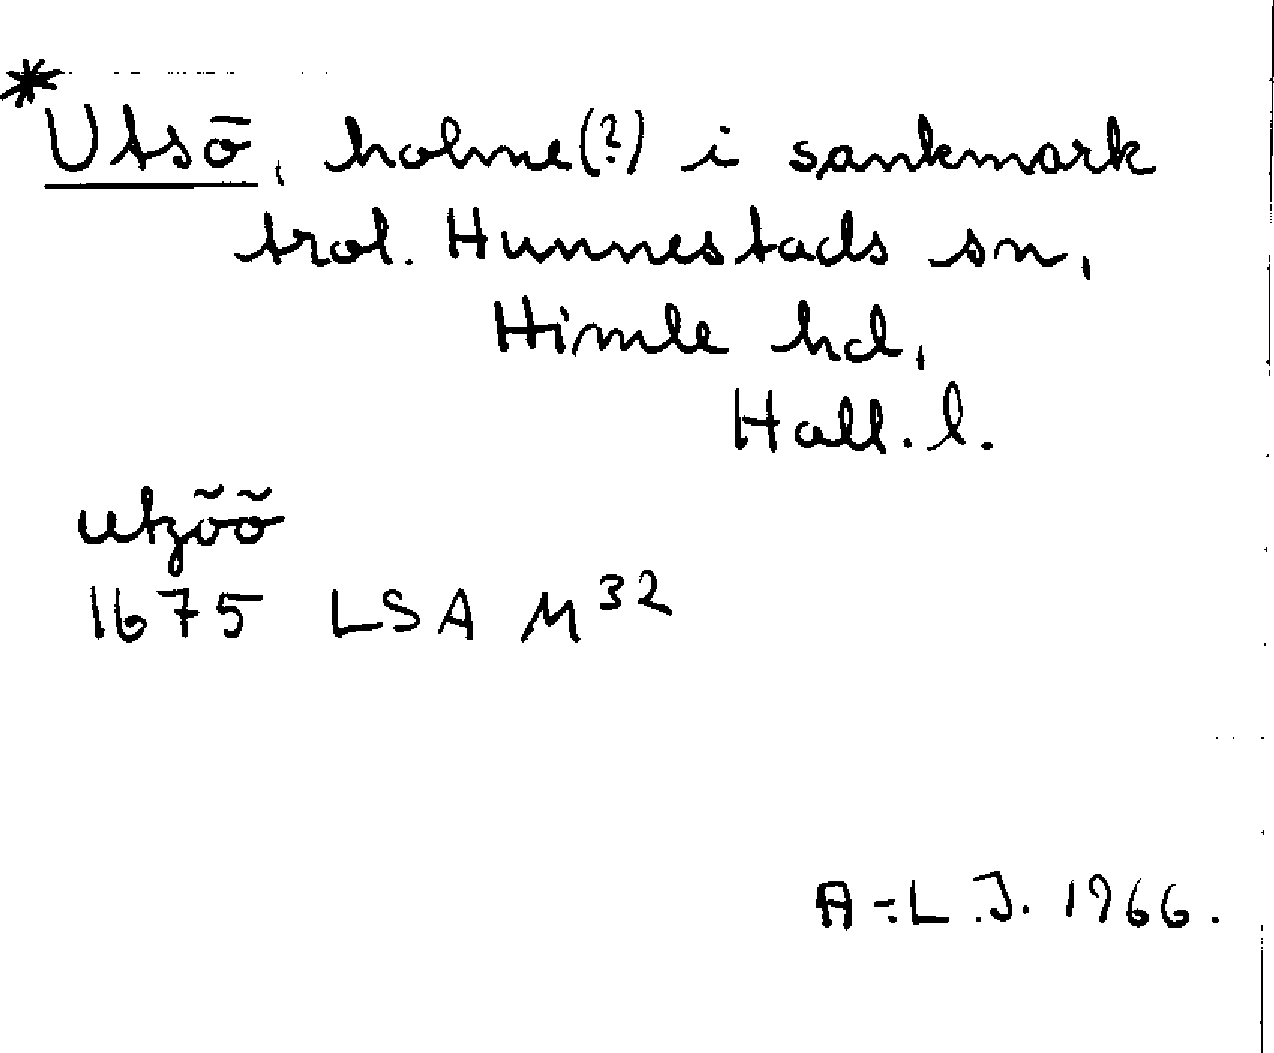 *Utsö, holme(?) i sankmark
trol. Hunnestads sn,
Himle hd,
Hall. l.
utzöö
1675 LSA M32
A-L.J. 1966.